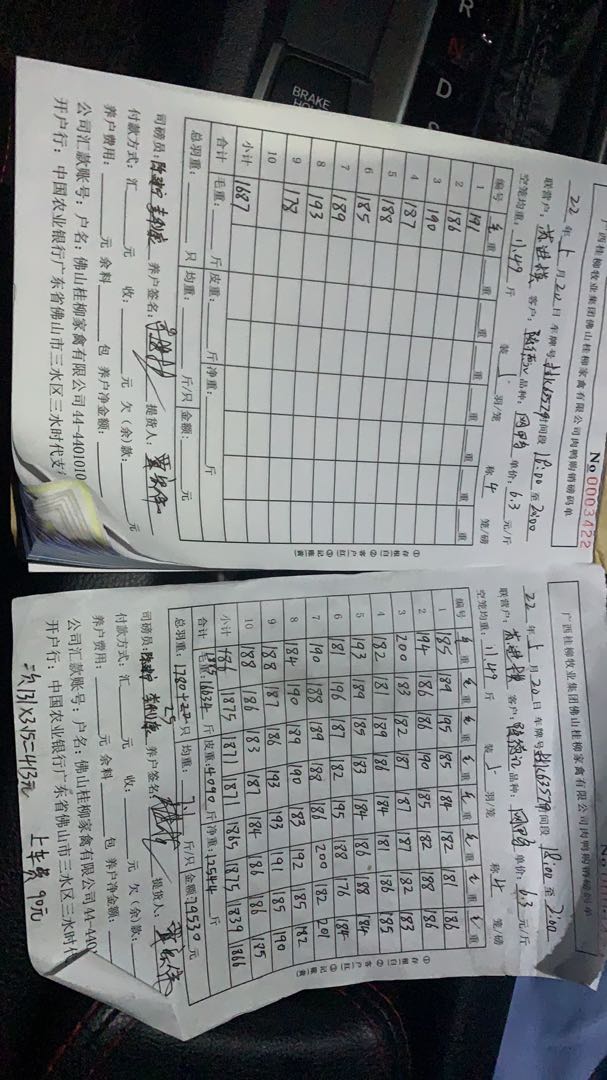 BRAKE
R
N
D
广西桂柳牧业集团佛山桂柳家禽有限公司肉鸭购销磅码单
No 0003422
22 年 5 月 20 日 车牌号 时间段 18:00 至 20:00
联营户: 客户: 品种: 单价: 6.3 元/斤
空笼均重: 11.49 斤 装 5 羽/笼 称 4 笼/磅
编号 毛重 重 重 重 重 重 重 重
1 191
2 186
3 190
4 187
5 188
6 185
7 189
8 193
9 178
10
小计 1687
合计 毛重: 斤 皮重: 斤 净重: 斤
总羽重: 只 均重: 斤/只 金额: 元
司磅员: 养户签名: 提货人:
付款方式: 汇 元 收: 元 欠(余)款: 元
养户费用: 元 余料 包 养户净金额:
公司汇款账号: 户名: 佛山桂柳家禽有限公司 44-4401010
开户行: 中国农业银行广东省佛山市三水区三水时代支
①存根白 ②客户红 ③记账黄
广西桂柳牧业集团佛山桂柳家禽有限公司肉鸭购销磅码单
22 年 5 月 20 日 车牌号 时间段 18:00 至 20:00
联营户: 客户: 品种: 单价: 6.3 元/斤
空笼均重: 11.49 斤 装 5 羽/笼 称 4 笼/磅
编号 毛重 毛重 毛重 毛重 毛重 毛重 毛重 毛重
1 185 189 195 185 184 182 181 186
2 194 186 186 190 185 182 188 186
3 200 183 182 187 187 187 182 183
4 182 181 189 186 184 181 186 185
5 193 189 185 183 184 186 188 184
6 181 196 187 182 195 188 176 184
7 190 188 189 188 186 200 182 201
8 184 190 189 190 183 192 185 182
9 188 187 186 193 193 191 185 190
10 188 186 183 187 184 186 186 185
小计 1875 1871 1871 1865 1875 1839 1866
合计 毛重: 16634 斤 皮重: 4090 斤 净重: 12544 斤
总羽重: 只 均重: 斤/只 金额: 79530 元
司磅员: 养户签名: 提货人:
付款方式: 汇 元 收: 元 欠(余)款: 元
养户费用: 元 余料 包 养户净金额:
公司汇款账号: 户名: 佛山桂柳家禽有限公司 44-440
开户行: 中国农业银行广东省佛山市三水区三水时代
131×3.15=413元 上车费 90元
①存根白 ②客户红 ③记账黄